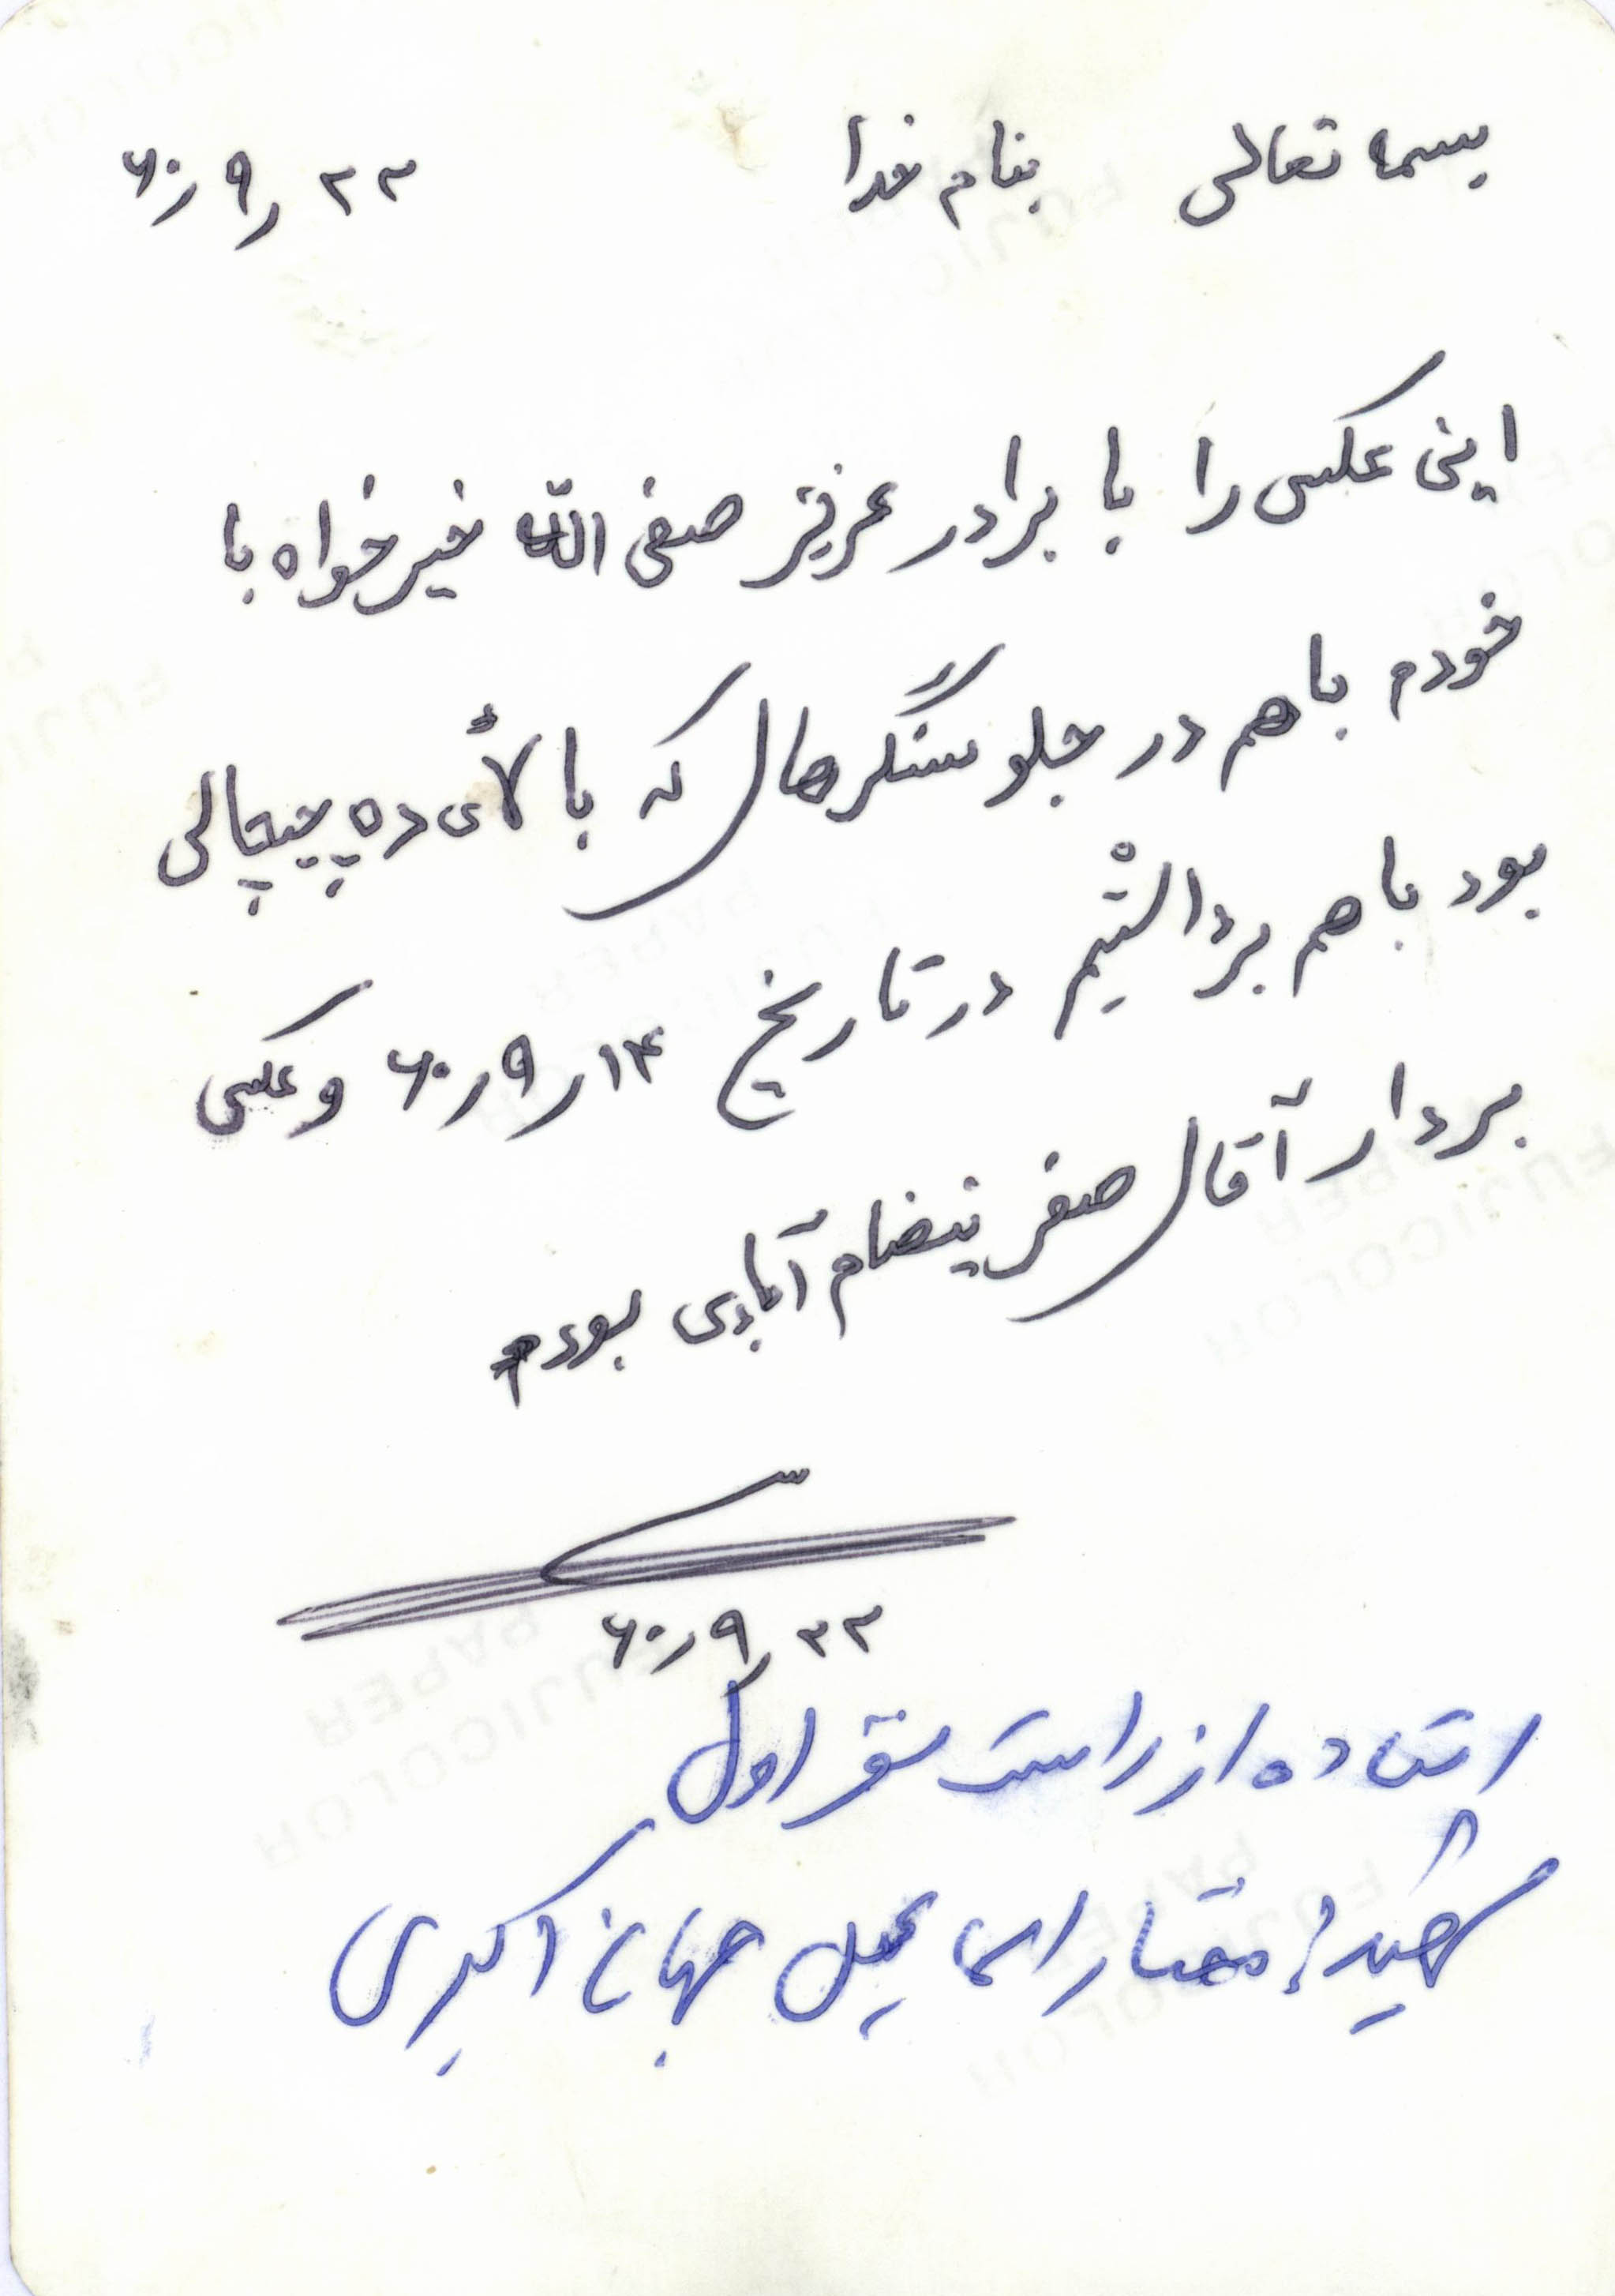 بسما تعالی بنام خدا ۲۳ر۹ر۶۰
اینی عکس را با برادر عزیز صفی الله خیرخواه با
خودم باهم در جلو سنگرهای که بالای ده پیچالی
بود باهم برداشتیم در تاریخ ۱۴ر۹ر۶۰ و عکس
بردار آقای صفر نیضام آبادی بودم
۲۳ر۹ر۶۰
استاده از راست نفر اول
شهید اسماعیل جهان اکبری
FUJICOLOR
PAPER